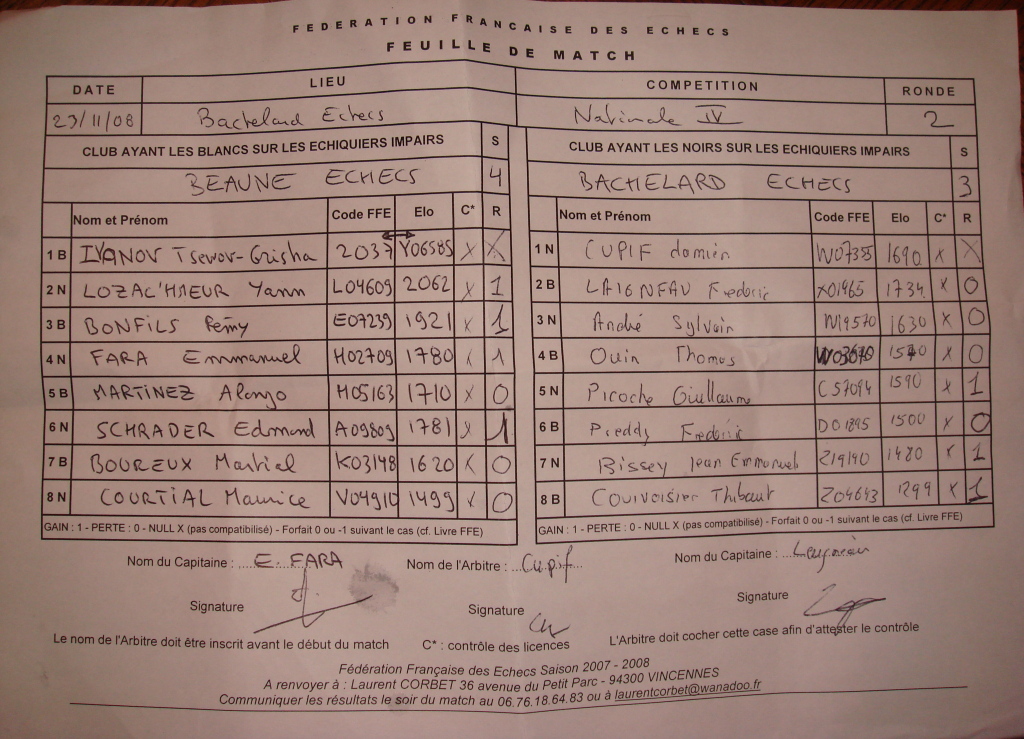 FEDERATION FRANCAISE DES ECHECS
FEUILLE DE MATCH
DATE LIEU COMPETITION RONDE
23/11/08 Bachelard Echecs Nationale IV 2
CLUB AYANT LES BLANCS SUR LES ECHIQUIERS IMPAIRS S CLUB AYANT LES NOIRS SUR LES ECHIQUIERS IMPAIRS S
BEAUNE ECHECS 4 BACHELARD ECHECS 3
Nom et Prénom Code FFE Elo C* R Nom et Prénom Code FFE Elo C* R
1 B IVANOV Tsevov-Grisha 2037 Y06585 X X 1 N CUPIF damien W07385 1690 X X
2 N LOZAC'HMEUR Yann L04609 2062 X 1 2 B LAIGNEAU Frederic X01465 1734 X 0
3 B BONFILS Rémy E07239 1921 X 1 3 N André Sylvain 1630 X 0
4 N FARA Emmanuel H02709 1780 X 1 4 B Ouin Thomas 1570 X 0
5 B MARTINEZ Alonzo H05163 1710 X 0 5 N Picoche Guillaume C57094 1590 X 1
6 N SCHRADER Edmond A09809 1781 X 1 6 B Preddy Frederic D01895 1500 X 0
7 B BOUREUX Martial K03148 1620 X 0 7 N Bissey Jean Emmanuel Z19190 1480 X 1
8 N COURTIAL Maurice V04910 1499 X 0 8 B Couivoisier Thibaut Z04643 1299 X 1
GAIN : 1 - PERTE : 0 - NULL X (pas compatibilisé) - Forfait 0 ou -1 suivant le cas (cf. Livre FFE) GAIN : 1 - PERTE : 0 - NULL X (pas compatibilisé) - Forfait 0 ou -1 suivant le cas (cf. Livre FFE)
Nom du Capitaine : E. FARA Nom de l'Arbitre : Cupif Nom du Capitaine :
Signature Signature Signature
Le nom de l'Arbitre doit être inscrit avant le début du match C* : contrôle des licences L'Arbitre doit cocher cette case afin d'attester le contrôle
Fédération Française des Echecs Saison 2007 - 2008
A renvoyer à : Laurent CORBET 36 avenue du Petit Parc - 94300 VINCENNES
Communiquer les résultats le soir du match au 06.76.18.64.83 ou à laurentcorbet@wanadoo.fr